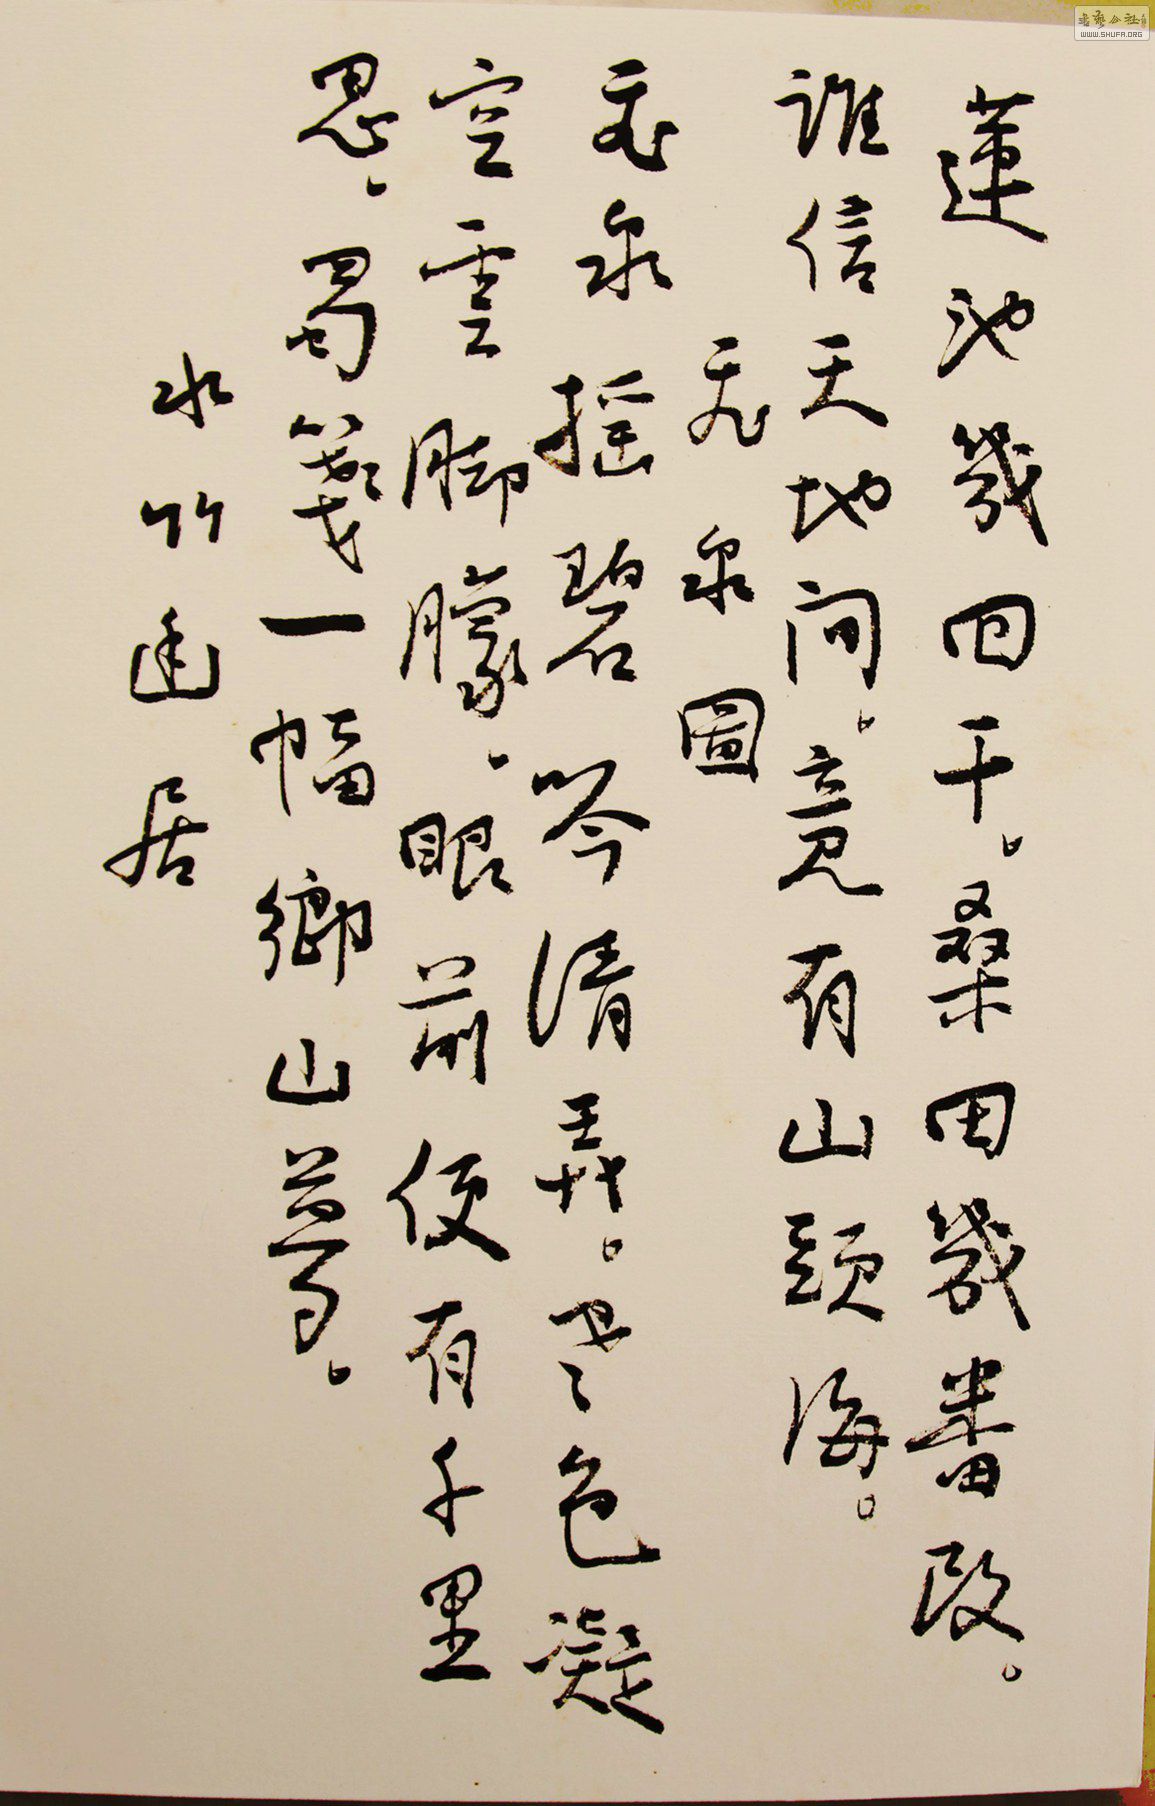 蓮池幾回干。桑田幾番改。
誰信天地间。竟有山頭海。
泉圖
泉摇碧吟清弄。色凝
空雲脚朦、眼前便有千里
思、蜀箋一幅鄉山夢。
水竹幽居
書藝公社
WWW.SHUFA.ORG